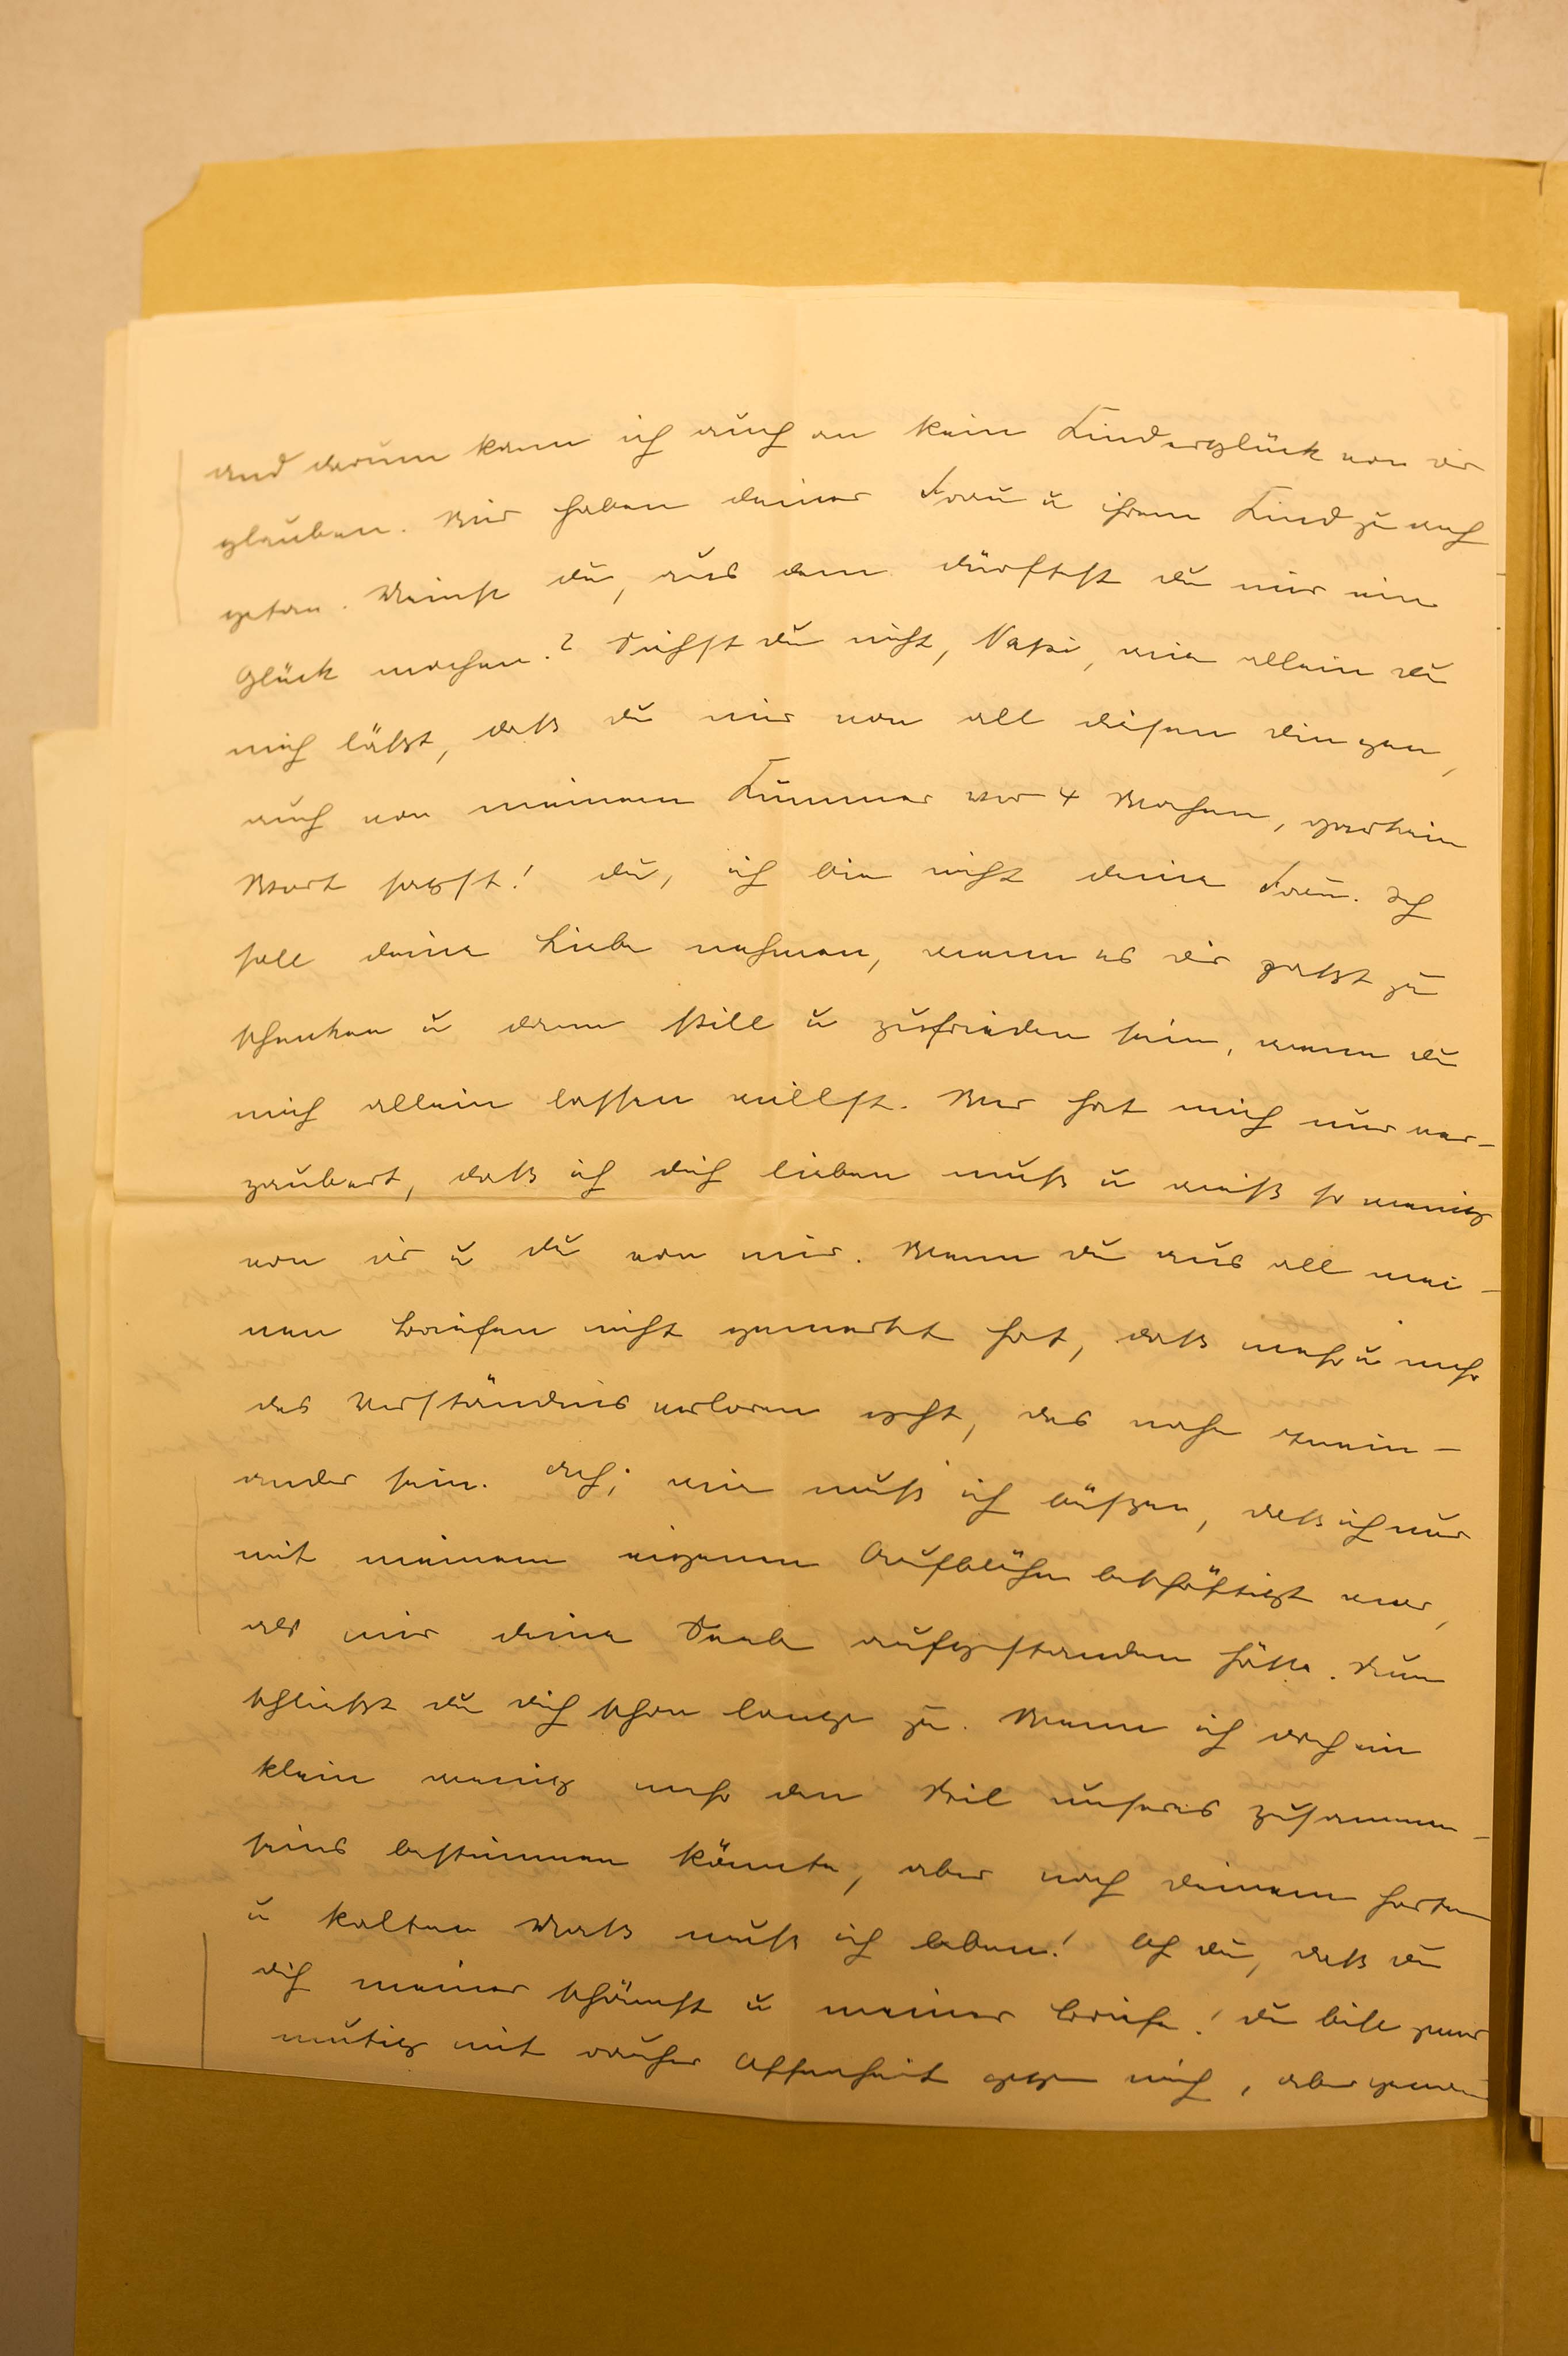 und darum kann ich auch an kein Kinderglück von dir
glauben. Wir haben deiner Frau u ihrem Kind zu weh
getan. Meinst du, aus dem dürftest du mir ein
Glück machen? Siehst du nicht, wie allein du
mich läßt, daß du mir von all diesen dingen,
auch von meinem Kummer vor 4 Wochen, gar kein
Wort sagst! du, ich bin nicht deine Frau. Ich
soll deine Liebe nehmen, wenn es dir paßt zu
schenken u dann still u zufrieden sein, wenn du
mich allein lassen willst. Wer hat mich nur ver-
zaubert, daß ich dich lieben muß u weiß so wenig
von dir u du von mir. Wenn du aus all mei-
nen Briefen nicht gemerkt hat, daß mehr u mehr
das Verständnis verloren geht, das nahe zuein-
ander sein. Ach, wie muß ich büßen, daß ich nur
mit meinem eigenen Aufblühn beschäftigt war,
als mir deine Seele aufgestanden hätte. Nun
schließt du dich schon lange zu. Wenn ich doch ein
klein wenig mehr den Stil unseres zusammen-
seins bestimmen könnte, aber nach deinem harten
u kalten Maß muß ich leben! Ach du, daß du
dich meiner schämst u meiner Briefe! du bist zwar
mutig mit rauher Offenheit gegen mich, aber